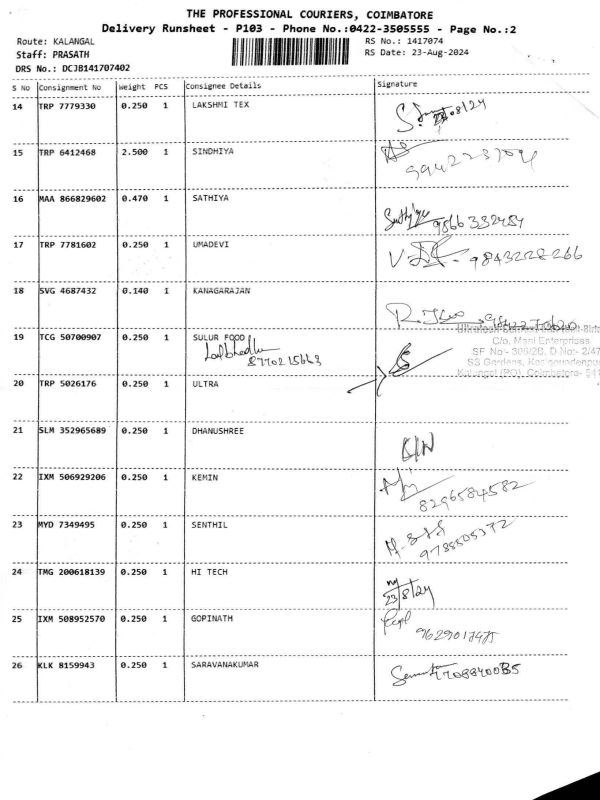 THE PROFESSIONAL COURIERS, COIMBATORE
Delivery Runsheet - P103 - Phone No.:0422-3505555 - Page No.:2
Route: KALANGAL RS No.: 1417074
Staff: PRASATH RS Date: 23-Aug-2024
DRS No.: DCJB141707402
S No Consignment No Weight PCS Consignee Details Signature
14 TRP 7779330 0.250 1 LAKSHMI TEX
15 TRP 6412468 2.500 1 SINDHIYA
16 MAA 866829602 0.470 1 SATHIYA
Sathiya 9866332484
17 TRP 7781602 0.250 1 UMADEVI
9843228266
18 SVG 4687432 0.140 1 KANAGARAJAN
19 TCG 50700907 0.250 1 SULUR FOOD
C/o, Mani Enterprises
8770215663
SF No:- 306/2B, D.No:- 2/47
20 TRP 5026176 0.250 1 ULTRA
21 SLM 352965689 0.250 1 DHANUSHREE
22 IXM 506929206 0.250 1 KEMIN
8296584582
23 MYD 7349495 0.250 1 SENTHIL
9785505372
24 TMG 200618139 0.250 1 HI TECH
23/8/24
25 IXM 508952570 0.250 1 GOPINATH
9629017475
26 KLK 8159943 0.250 1 SARAVANAKUMAR